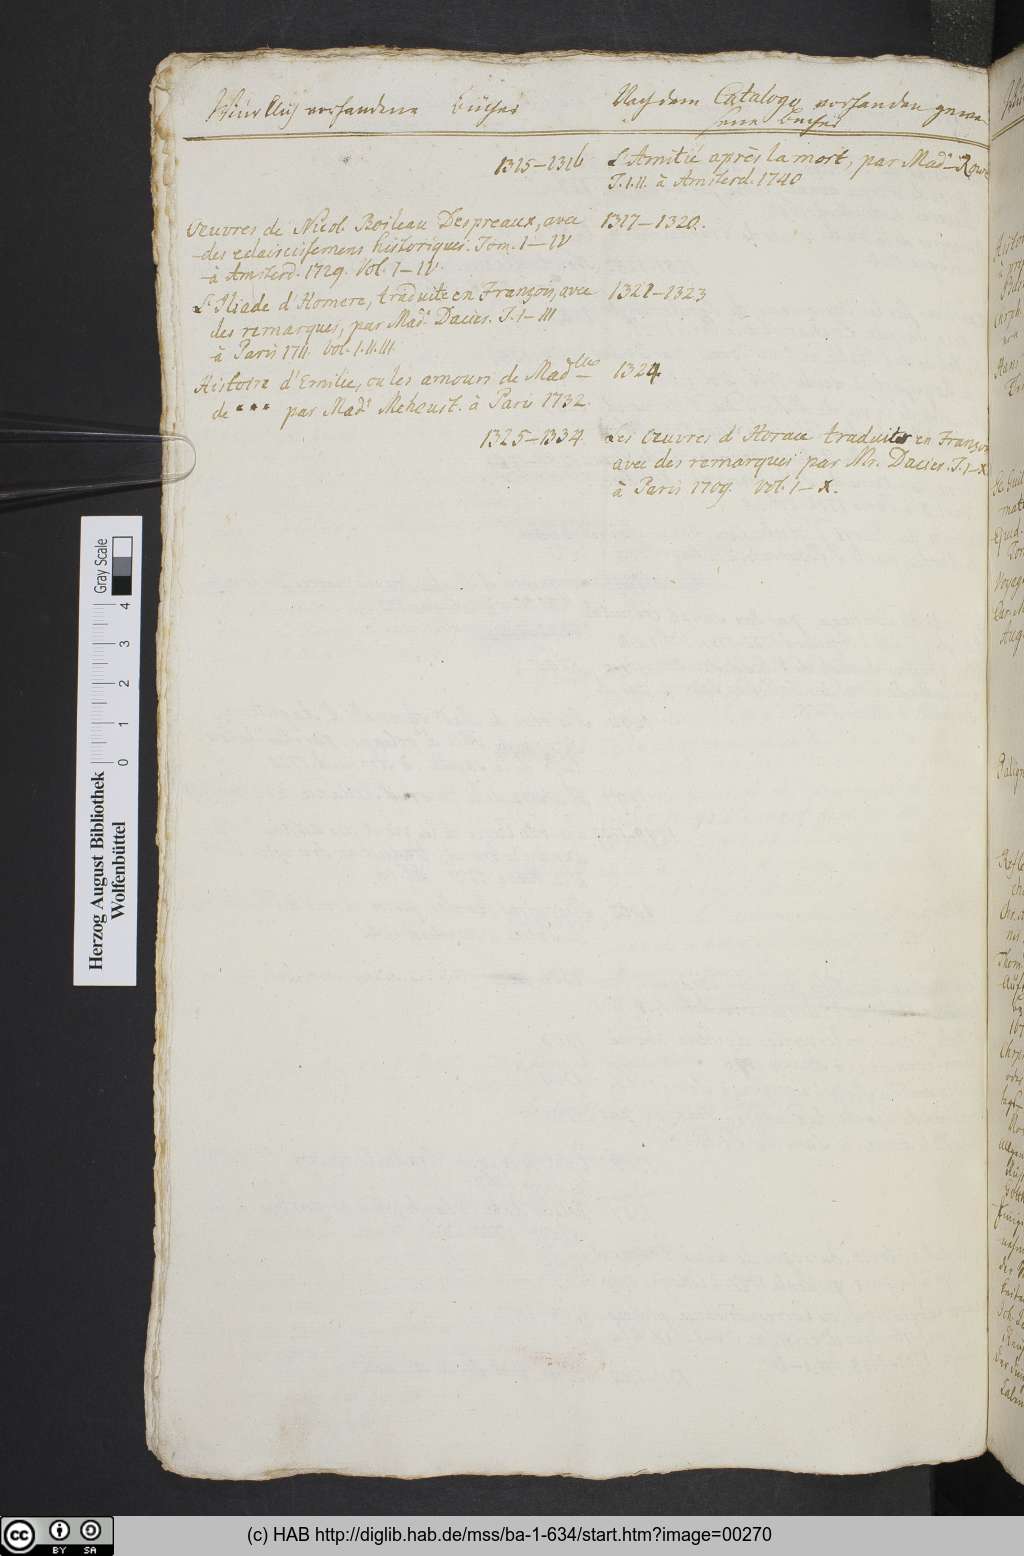 Würklich vorhandene Bücher
Nach dem Catalogo vorhanden gewe-
sene Bücher
1315-1316
L'Amitié après la mort, par Mad.e Rowe
T. I. II. à Amsterd. 1740
Oeuvres de Nicol. Boileau Despreaux, avec
des eclaircissemens historiques. Tom. I-IV
à Amsterd. 1729. Vol. I-IV.
1317-1320.
L'Iliade d'Homere, traduite en François, avec
des remarques, par Mad.e Dacier. T. I-III
à Paris 1711. Vol. I. II. III.
1321-1323
Histoire d'Emilie, ou les amours de Mad.lle
de *** par Mad.e Meheust. à Paris 1732.
1324.
1325-1334.
Les Oeuvres d'Horace traduites en François
avec des remarques par Mr. Dacier. T. I-X
à Paris 1709. Vol. I-X.
Gray Scale
4
3
2
1
0
Herzog August Bibliothek
Wolfenbüttel
cc BY SA
(c) HAB http://diglib.hab.de/mss/ba-1-634/start.htm?image=00270